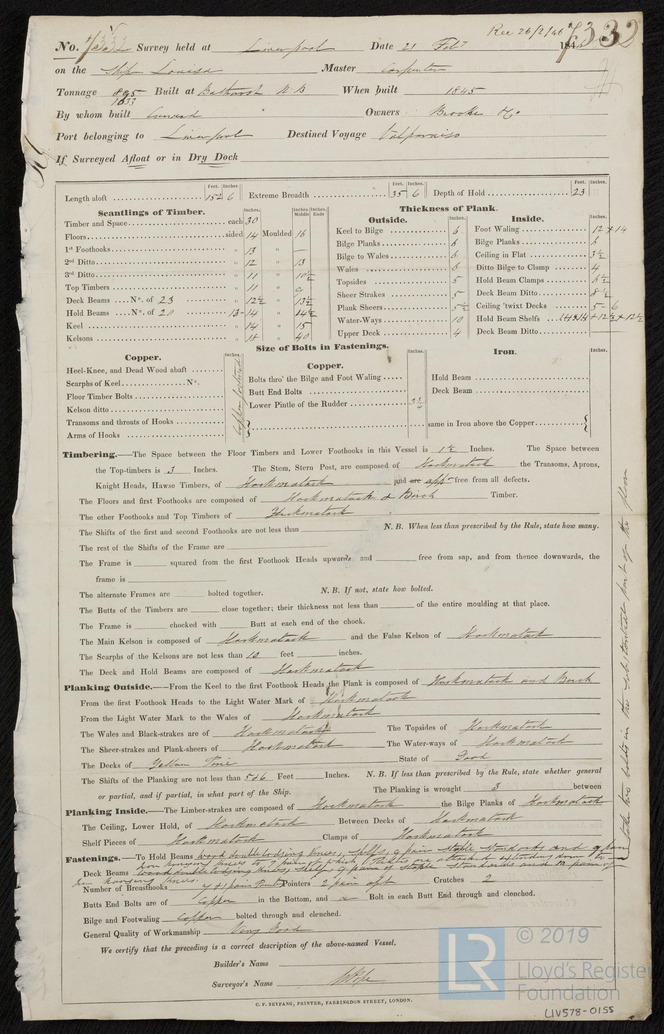 Rec 26/2/46
No. Survey held at Liverpool Date 21 Feby 184 7332
on the Ship Louisa Master Carpenter
Tonnage 895 1033 Built at Bathurst N B When built 1845
By whom built Owners Brooke & Co
Port belonging to Liverpool Destined Voyage Valparaiso
If Surveyed Afloat or in Dry Dock
Feet. Inches. Feet. Inches. Feet. Inches.
Length aloft 152 6 Extreme Breadth 35 6 Depth of Hold 23
Scantlings of Timber.
Inches. Inches Middle Inches Ends
Timber and Space each 30
Floors sided 14 Moulded 16
1st Foothooks " 13 " —
2nd Ditto " 12 " 13
3rd Ditto " 11 " 10½
Top Timbers " 11 " 9
Deck Beams No. of 23 " 12½ " 13½
Hold Beams No. of 20 13- 14 " 14½
Keel " 14 " 15
Kelsons " 14 " 40
Thickness of Plank.
Outside. Inches.
Keel to Bilge 6
Bilge Planks 6
Bilge to Wales 6
Wales 6
Topsides 5
Sheer Strakes 5
Plank Sheers 5½
Water-Ways 10
Upper Deck 4
Inside. Inches.
Foot Waling 12 × 14
Bilge Planks 6
Ceiling in Flat 3½
Ditto Bilge to Clamp 4
Hold Beam Clamps 6½
Deck Beam Ditto
Ceiling 'twixt Decks 5 - 6
Hold Beam Shelfs
Deck Beam Ditto
Size of Bolts in Fastenings.
Copper. Inches.
Heel-Knee, and Dead Wood abaft
Scarphs of Keel No.
Floor Timber Bolts
Kelson ditto
Transoms and throats of Hooks
Arms of Hooks
Copper fastened
Copper. Inches.
Bolts thro' the Bilge and Foot Waling
Butt End Bolts
Lower Pintle of the Rudder
Iron. Inches.
Hold Beam
Deck Beam
same in Iron above the Copper
Timbering.—The Space between the Floor Timbers and Lower Foothooks in this Vessel is 1½ Inches. The Space between
the Top-timbers is 3 Inches. The Stem, Stern Post, are composed of Hackmatack the Transoms, Aprons,
Knight Heads, Hawse Timbers, of Hackmatack and are appr free from all defects.
The Floors and first Foothooks are composed of Hackmatack & Birch Timber.
The other Foothooks and Top Timbers of Hackmatack
The Shifts of the first and second Foothooks are not less than N.B. When less than prescribed by the Rule, state how many.
The rest of the Shifts of the Frame are
The Frame is squared from the first Foothook Heads upwards and free from sap, and from thence downwards, the
frame is
The alternate Frames are bolted together. N.B. If not, state how bolted.
The Butts of the Timbers are close together; their thickness not less than of the entire moulding at that place.
The Frame is chocked with Butt at each end of the chock.
The Main Kelson is composed of Hackmatack and the False Kelson of Hackmatack
The Scarphs of the Kelsons are not less than 10 feet inches.
The Deck and Hold Beams are composed of Hackmatack
Planking Outside.—From the Keel to the first Foothook Heads the Plank is composed of Hackmatack and Birch
From the first Foothook Heads to the Light Water Mark of Hackmatack
From the Light Water Mark to the Wales of Hackmatack
The Wales and Black-strakes are of Hackmatack The Topsides of Hackmatack
The Sheer-strakes and Plank-sheers of Hackmatack The Water-ways of Hackmatack
The Decks of Yellow Pine State of Good
The Shifts of the Planking are not less than 5&6 Feet Inches. N.B. If less than prescribed by the Rule, state whether general
or partial, and if partial, in what part of the Ship. The Planking is wrought 3 between
Planking Inside.—The Limber-strakes are composed of Hackmatack the Bilge Planks of Hackmatack
The Ceiling, Lower Hold, of Hackmatack Between Decks of Hackmatack
Shelf Pieces of Hackmatack Clamps of Hackmatack
Fastenings.—To Hold Beams wood double lodging knees, shelfs, 9 pair staple standards and 9 pair
Deck Beams wood double lodging knees, shelf, 9 pair of staple standards and 12 pair of
iron hanging knees.
Number of Breasthooks Pointers 2 pair aft Crutches 2
Butts End Bolts are of Copper in the Bottom, and a Bolt in each Butt End through and clenched.
Bilge and Footwaling Copper bolted through and clenched.
General Quality of Workmanship Very Good
We certify that the preceding is a correct description of the above-named Vessel.
Builder's Name
Surveyor's Name
C. F. SEYFANG, PRINTER, FARRINGDON STREET, LONDON.
with two bolts in the substantial part of the floor
LR © 2019
Lloyd's Register
Foundation
LIV578-0155